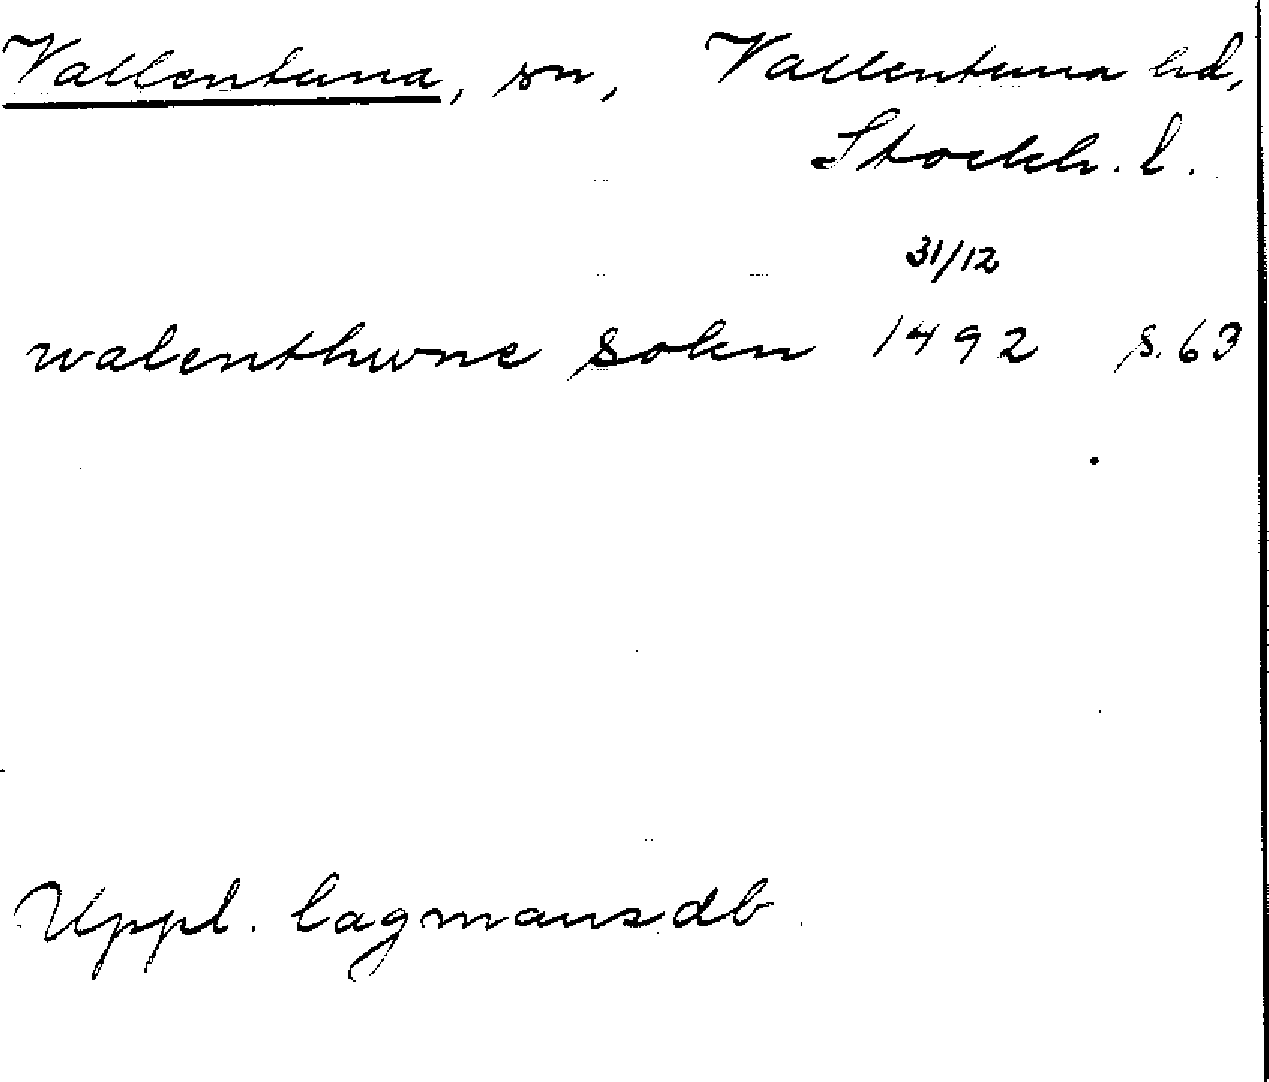 Vallentuna, sn, Vallentuna hd,
Stockh. l.
31/12
walenthwne sokn 1492 s. 63
Uppl. lagmansdb